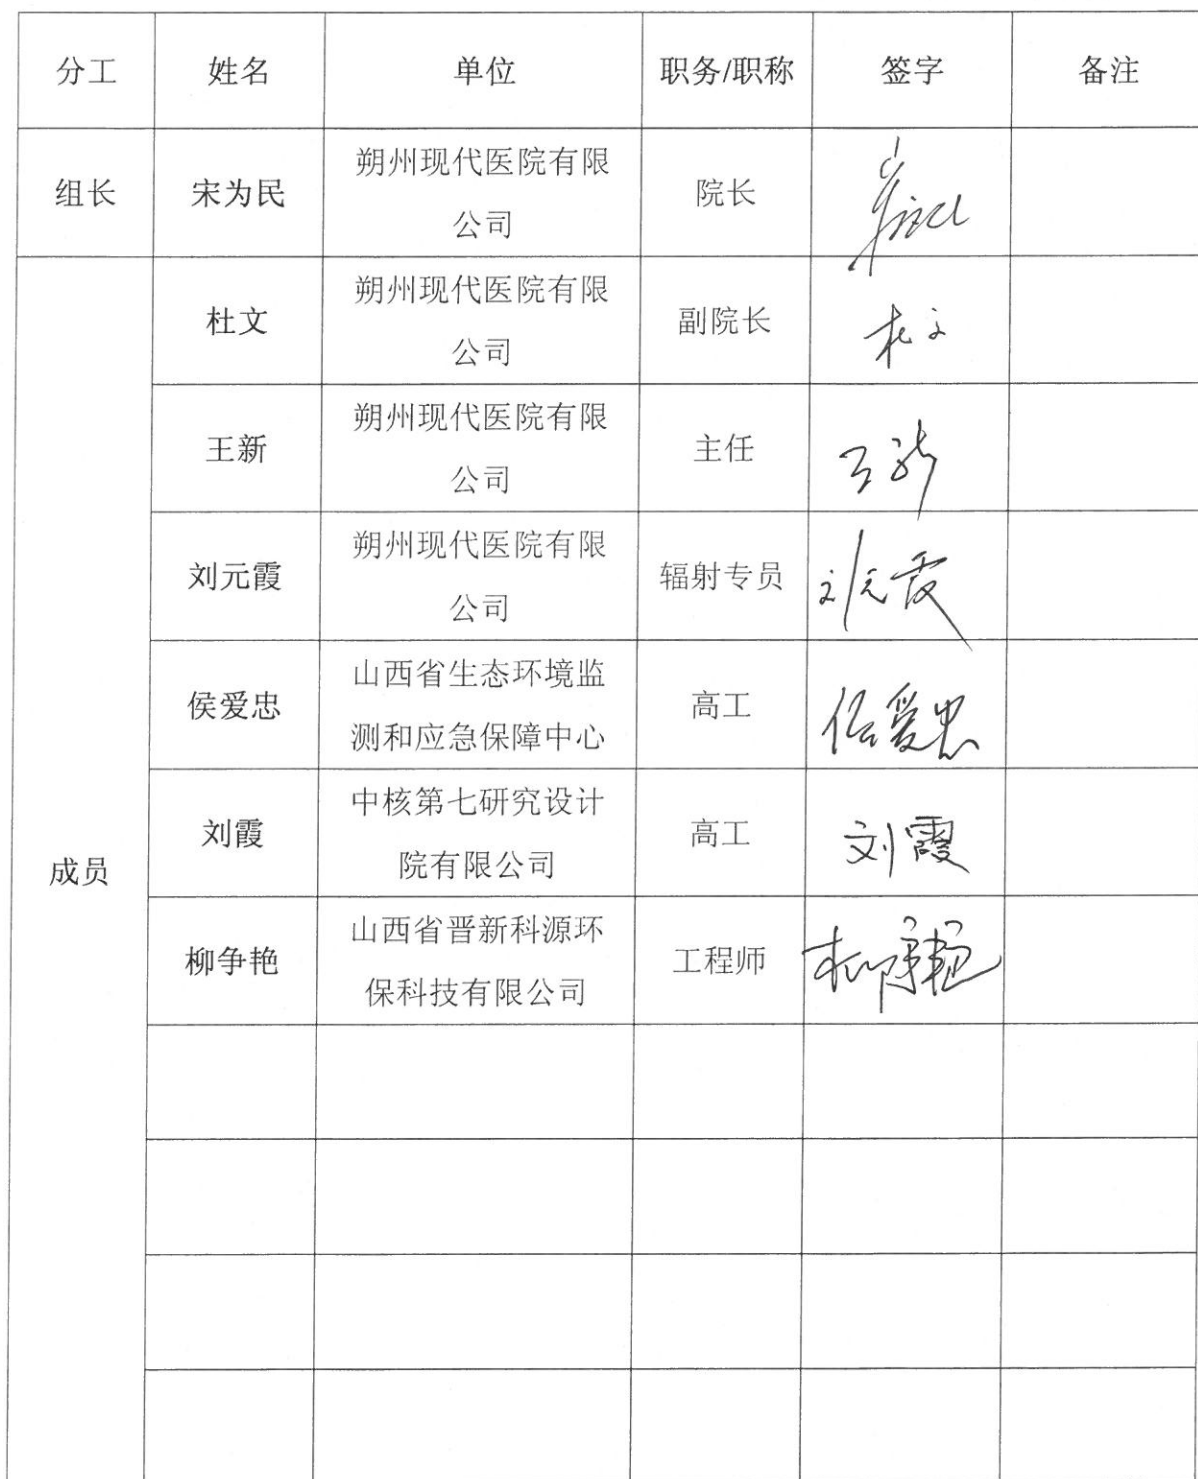 分工 姓名 单位 职务/职称 签字 备注
组长 宋为民 朔州现代医院有限
公司 院长
杜文 朔州现代医院有限
公司 副院长 杜文
王新 朔州现代医院有限
公司 主任 王新
刘元霞 朔州现代医院有限
公司 辐射专员 刘元霞
侯爱忠 山西省生态环境监
测和应急保障中心 高工 侯爱忠
成员 刘霞 中核第七研究设计
院有限公司 高工 刘霞
柳争艳 山西省晋新科源环
保科技有限公司 工程师 柳争艳